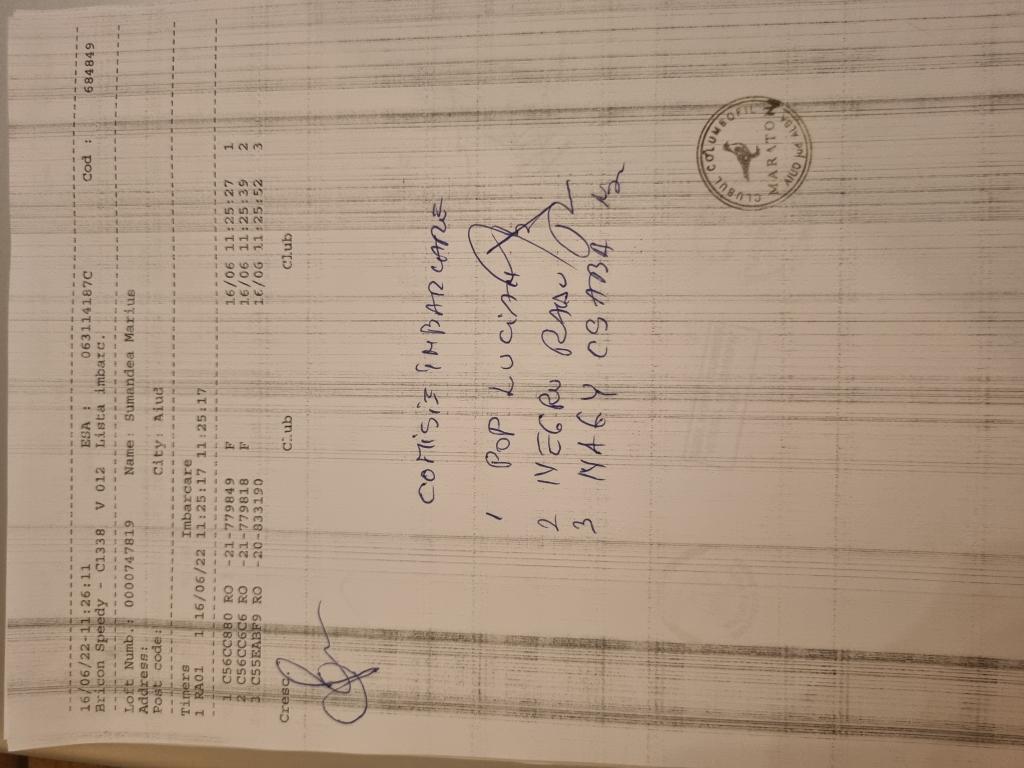 16/06/22-11:26:11 ESA : 063114187C Cod : 684849
Bricon Speedy - C1338 V 012 Lista imbarc.
Loft Numb.: 0000747819 Name: Sumandea Marius
Address:
Post code: City: Aiud
Timers Imbarcare
1 RA01 1 16/06/22 11:25:17 11:25:17
1 C56CC880 RO -21-779849 F 16/06 11:25:27 1
2 C56CC6C6 RO -21-779818 F 16/06 11:25:39 2
3 C55EABF9 RO -20-833190 16/06 11:25:52 3
Cresc Club Club
COMISIE IMBARCARE
1 POP LUCIAN
2 NEGRU RADU
3 NAGY CSABA
CLUBUL COLUMBOFIL
MARATON
AIUD
ALBA